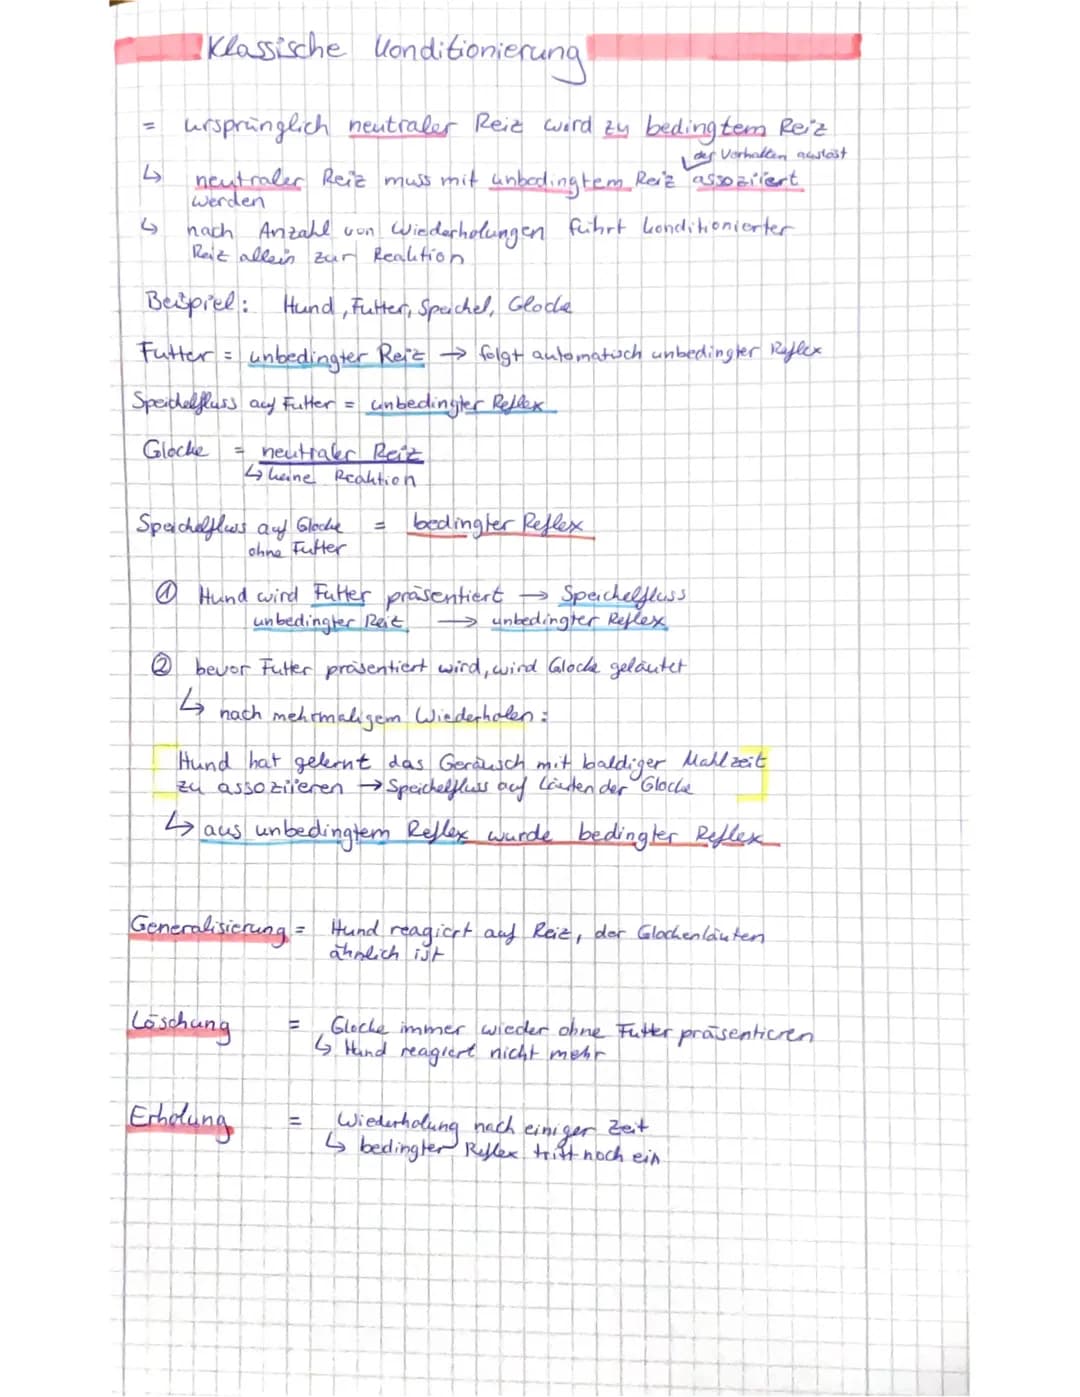 Klassische Konditionierung
= ursprünglich neutraler Reiz wird zu bedingtem Reiz
der Verhalten auslöst
↳ neutraler Reiz muss mit unbedingtem Reiz assoziiert
werden
↳ nach Anzahl von Wiederholungen führt konditionierter
Reiz allein zur Reaktion
Beispiel: Hund, Futter, Speichel, Glocke
Futter = unbedingter Reiz → folgt automatisch unbedingter Reflex
Speichelfluss auf Futter = unbedingter Reflex
Glocke = neutraler Reiz
↳ keine Reaktion
Speichelfluss auf Glocke = bedingter Reflex
ohne Futter
① Hund wird Futter präsentiert → Speichelfluss
unbedingter Reiz → unbedingter Reflex
② bevor Futter präsentiert wird, wird Glocke geläutet
↳ nach mehrmaligem Wiederholen:
Hund hat gelernt das Geräusch mit baldiger Mahlzeit
zu assoziieren → Speichelfluss auf Läuten der Glocke
↳ aus unbedingtem Reflex wurde bedingter Reflex
Generalisierung = Hund reagiert auf Reiz, der Glockenläuten
ähnlich ist
Löschung = Glocke immer wieder ohne Futter präsentieren
↳ Hund reagiert nicht mehr
Erholung = Wiederholung nach einiger Zeit
↳ bedingter Reflex tritt noch ein